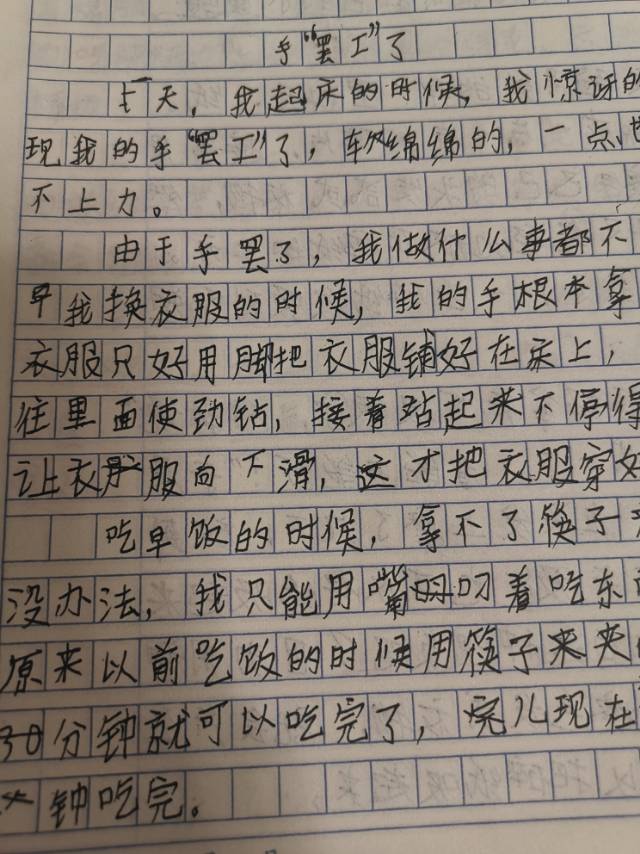 手“罢工”了
一天，我起床的时候，我惊讶的
现我的手“罢工”了，软绵绵的，一点也
不上力。
由于手罢了，我做什么事都不
早我换衣服的时候，我的手根本拿
衣服只好用脚把衣服铺好在床上，
往里面使劲钻，接着站起来不停得
让衣服向下滑，这才把衣服穿好
吃早饭的时候，拿不了筷子
没办法，我只能用嘴叼着吃东
原来以前吃饭的时候用筷子来夹
30分钟就可以吃完了，现在
钟吃完。